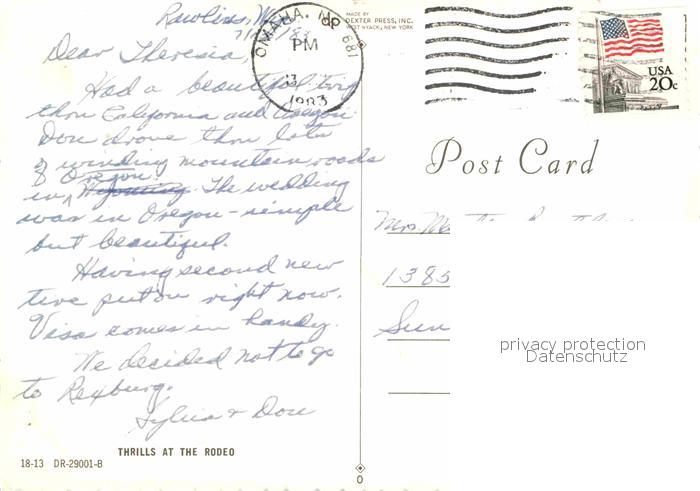 Rawlins, W
OMAHA, N 681
PM
13
1983
MADE BY
DEXTER PRESS, INC.
WEST NYACK, NEW YORK
dp
USA
20c
Dear Theresia,
Had a beautiful trip
thru California and Oregon.
Don drove thru lots
of winding mountain roads
Oregon
in Wyoming. The wedding
was in Oregon - simple
but beautiful.
Having second new
tire put on right now.
Visa comes in handy.
We decided not to go
to Rexburg.
Sylvia + Don
THRILLS AT THE RODEO
18-13 DR-29001-B
Post Card
Mrs
1385
Sun
privacy protection
Datenschutz
0